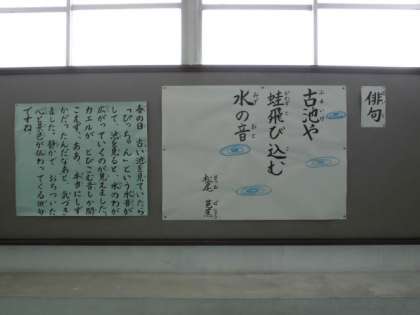 俳句
古池や
蛙飛び込む
水の音
松尾 芭蕉
春の日 古い池を見ていたら
という水音が
して、池を見ると、水のわが
広がっていくのが見えました。
カエルが、とびこむ音しか聞
こえず、ああ、本当にしず
かだったんだなあと、気づき
ました。静かで、おちついた
景色が伝わってくる俳句
ですね